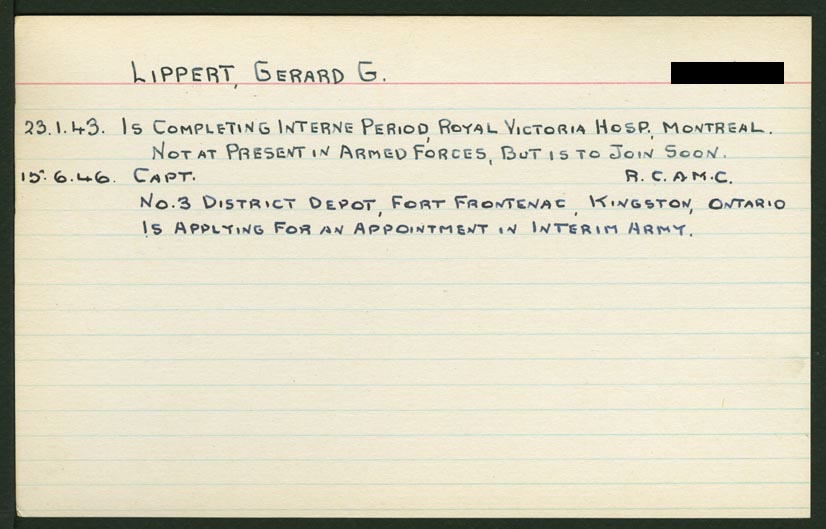 LIPPERT, GERARD G.
23.1.43. IS COMPLETING INTERNE PERIOD, ROYAL VICTORIA HOSP., MONTREAL.
NOT AT PRESENT IN ARMED FORCES, BUT IS TO JOIN SOON.
15.6.46. CAPT. R.C.A.M.C.
NO.3 DISTRICT DEPOT, FORT FRONTENAC, KINGSTON, ONTARIO
IS APPLYING FOR AN APPOINTMENT IN INTERIM ARMY.